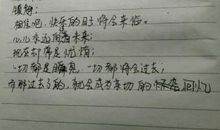 镇静:
相信吧,快乐的日子将会来临。
心儿永远向着未来;
现在却常是忧郁;
一切都是瞬息,一切都将会过去;
而那过去了的,就会成为亲切的怀恋